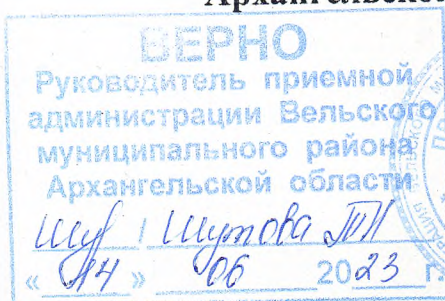 ВЕРНО
Руководитель приемной
администрации Вельского
муниципального района
Архангельской области
/ Шутова ТП
« 14 » 06 2023 г.